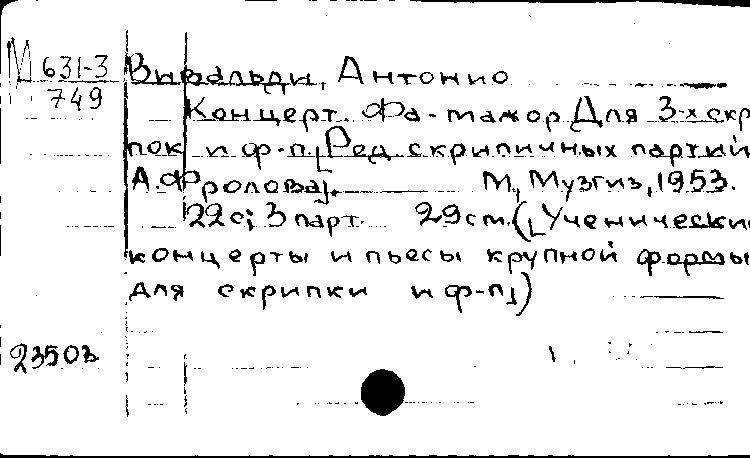 М 631-3
749
Вивальди, Антонио
Концерт. Фа-мажор Для 3-х скр
пок и ф-п. [Ред. скрипичных партий
А. Фролова]. М., Музгиз, 1953.
22 с; 3 парт. 29 см. ([Ученические
концерты и пьесы крупной формы
для скрипки и ф-п])
23503